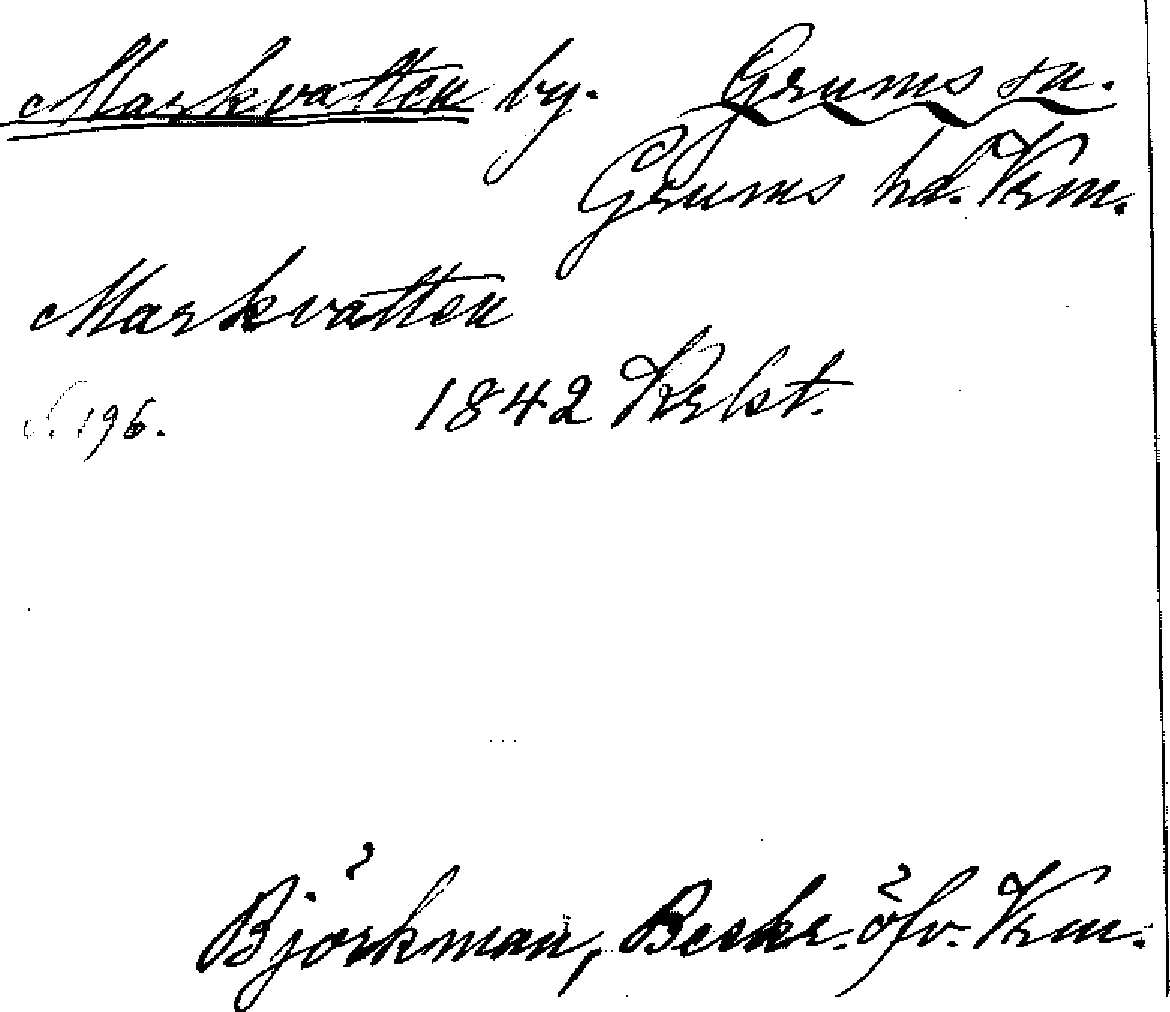 Markvatten by. Grums sn.
Grums hd. Vrm.
Markvatten
s. 196. 1842 Krlst.
Björkman, Beskr. öfv. Vrm.